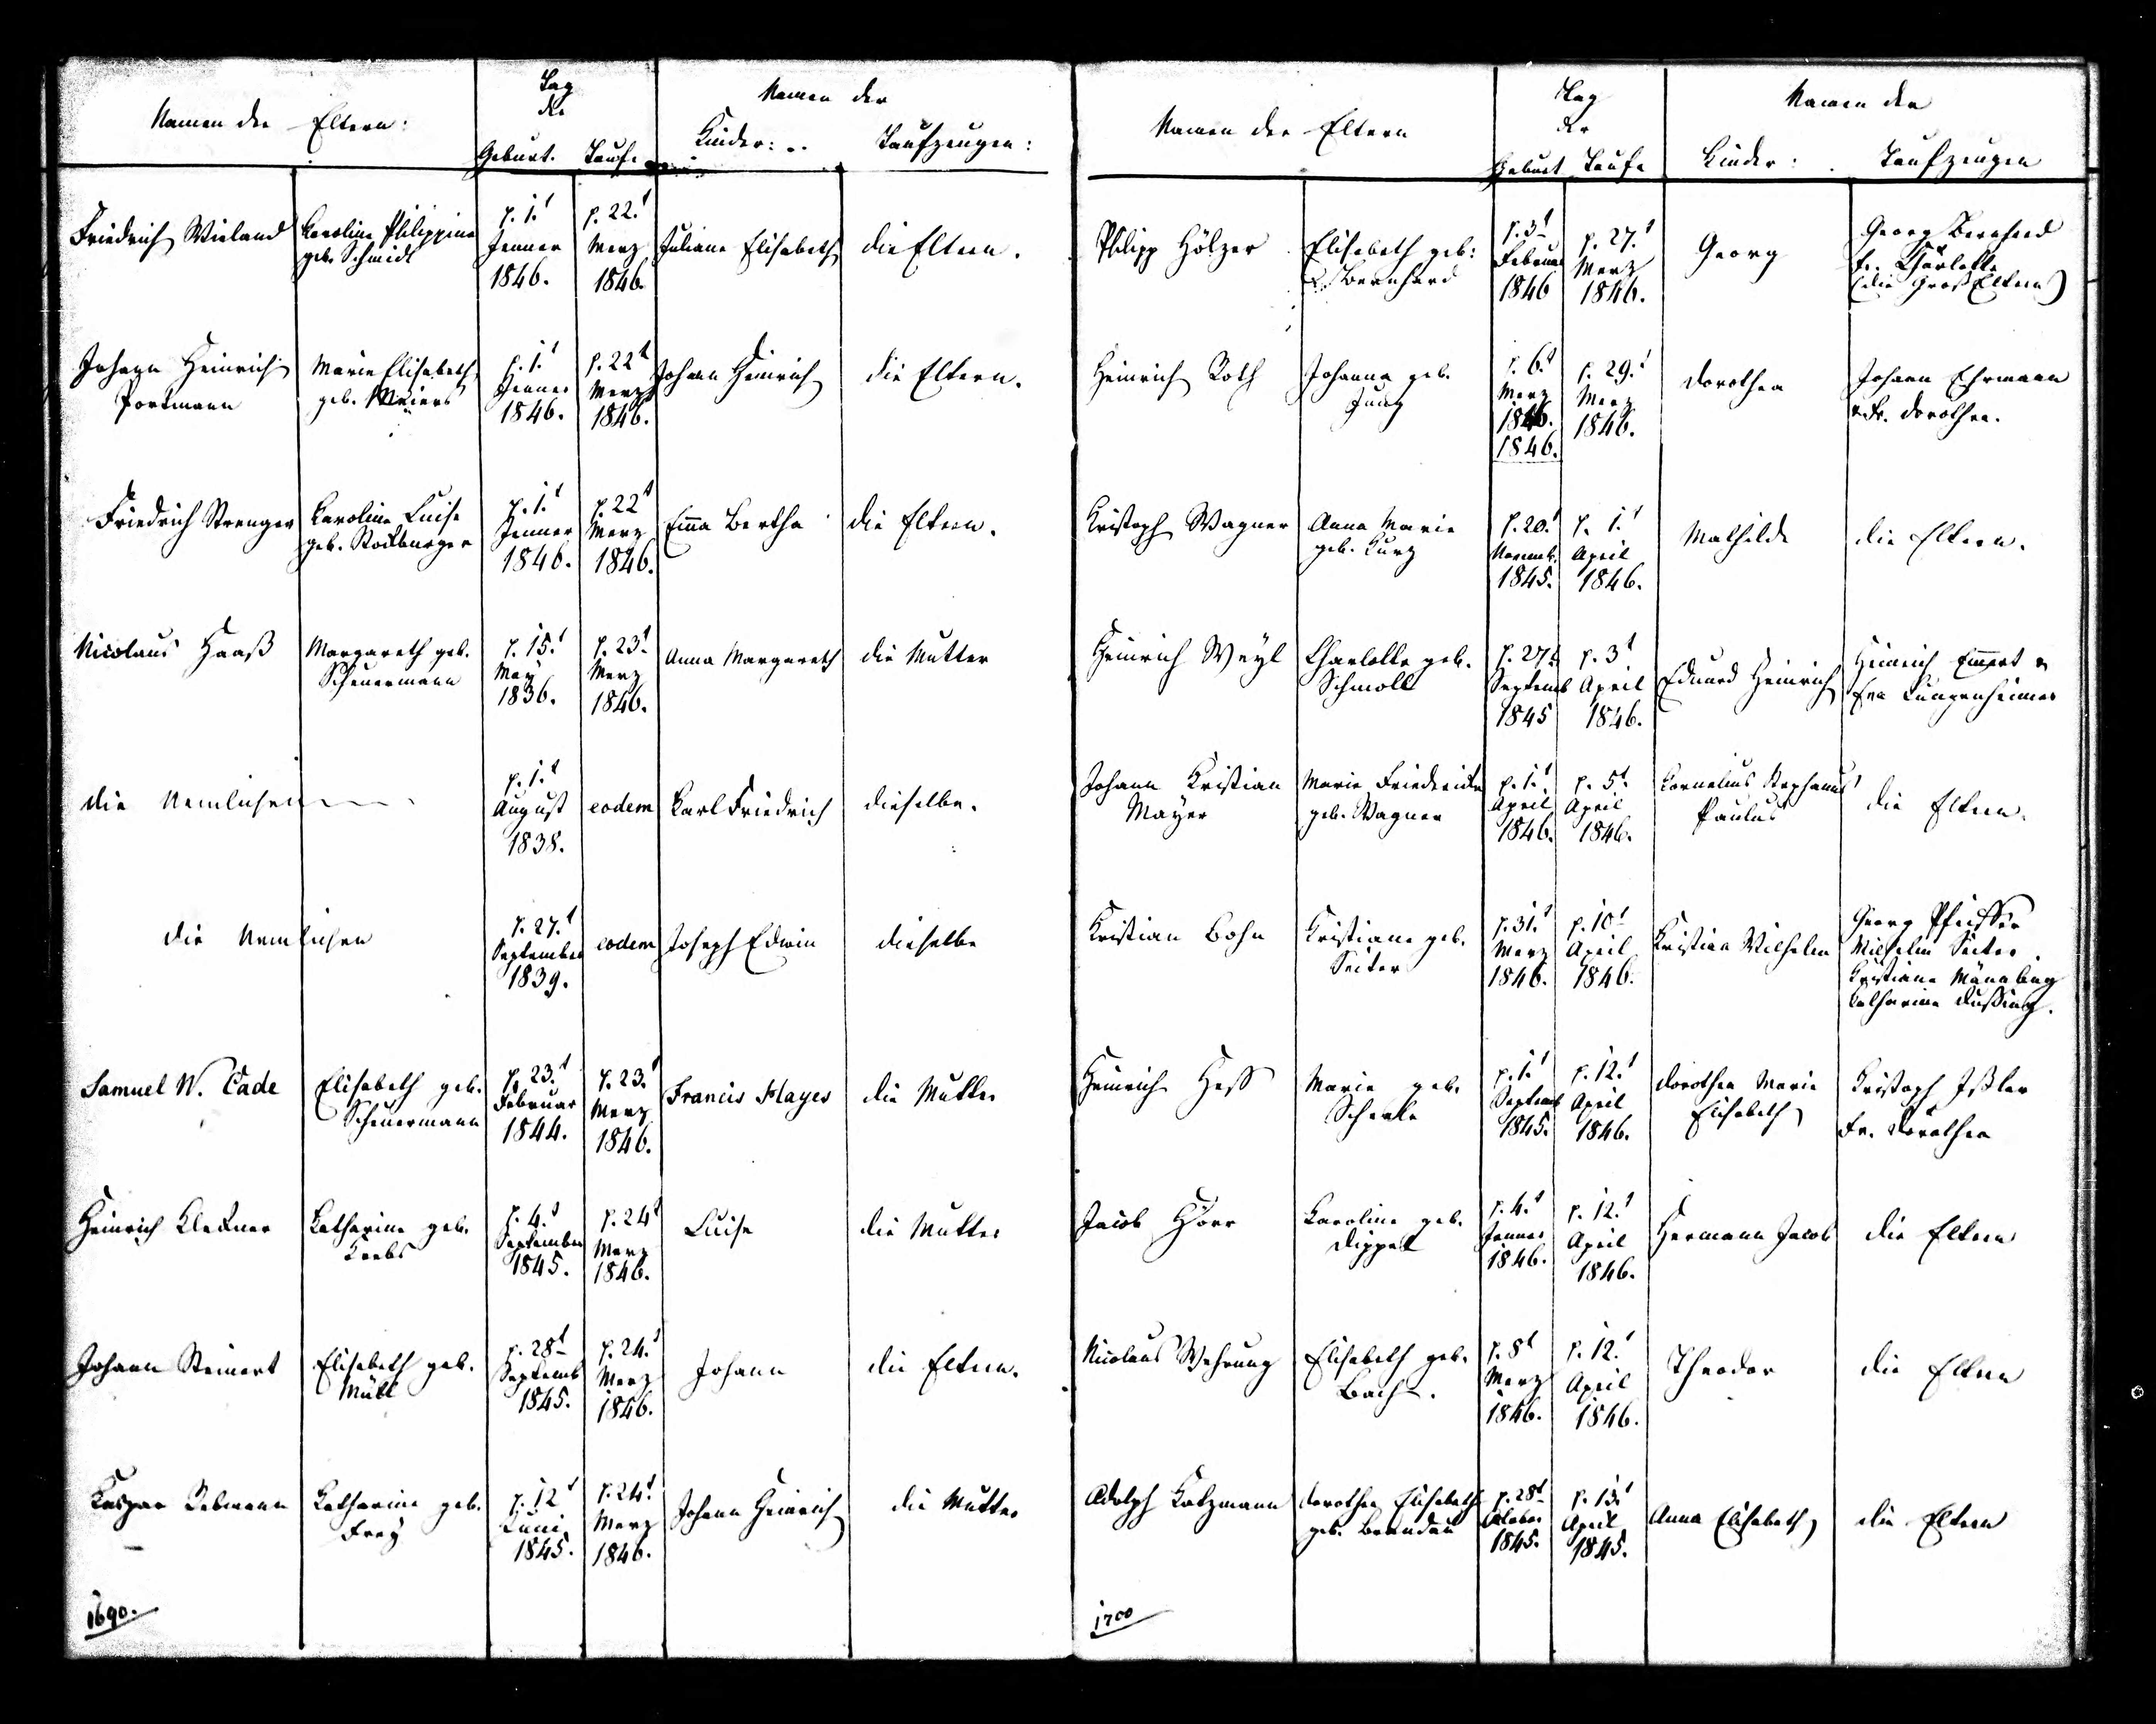 Namen der Eltern:
Tag
der
Geburt. Taufe
Namen der
Kinder: Taufzeugen:
Friedrich Wieland
Karoline Philippine
geb. Schmidt
d. 1.t
Jenner
1846.
d. 22.t
Merz
1846.
Juliane Elisabeth
die Eltern.
Johann Heinrich
Portmann
Marie Elisabeth
geb. Meiers
d. 1.t
Jenner
1846.
d. 22t
Merz
1846.
Johann Heinrich
die Eltern.
Friedrich Strenger
Karoline Luise
geb. Stockburger
d. 1.t
Jenner
1846.
d. 22t
Merz
1846.
Emma Bertha
die Eltern.
Nicolaus Haaß
Margareth geb.
Scheuermann
d. 15.t
May
1836.
d. 23.t
Merz
1846.
Anna Margareth
die Mutter
die Nemlichen
d. 1.t
August
1838.
eodem
Karl Friedrich
dieselbe.
die Nemlichen
d. 27.t
September
1839.
eodem
Joseph Edwin
dieselbe
Samuel W. Cade
Elisabeth geb.
Scheuermann
d. 23.t
Februar
1844.
d. 23.t
Merz
1846.
Francis Hayes
die Mutter
Heinrich Kleckner
Katharine geb.
Krebs
d. 4.t
September
1845.
d. 24t
Merz
1846.
Luise
die Mutter
Johann Steinert
Elisabeth geb.
Mühl
d. 28t
Septemb
1845.
d. 24.t
Merz
1846.
Johann
die Eltern.
Kaspar
Katharine geb.
Frey
d. 12t
Juni
1845.
d. 24t
Merz
1846.
Johann Heinrich
die Mutter
1690.
Namen der Eltern
Tag
der
Geburt Taufe
Namen der
Kinder: Taufzeugen
Philipp Hölzer
Elisabeth geb:
Bernhard
d. 3t
Februar
1846
d. 27.t
Merz
1846.
Georg
Georg Bernhard
Fr. Charlotte
(die Großeltern)
Heinrich Roth
Johanna geb.
Jung
d. 6.t
Merz
1846.
1846.
d. 29.t
Merz
1846.
Dorothea
Johann Ehrmann
u Fr. Dorothea.
Kristoph Wagner
Anna Marie
geb. Kurz
d. 20.t
Novemb.
1845.
d. 1.t
April
1846.
Mathilde
die Eltern.
Heinrich Weyl
Charlotte geb.
Schmoll
d. 27t
Septemb
1845
d. 3t
April
1846.
Eduard Heinrich
Heinrich Emmert u
Eva Lungenheimer
Johann Kristian
Mayer
Marie Friedericke
geb. Wagner
d. 1.t
April
1846.
d. 5t
April
1846.
Kornelius Stephanus
Paulus
die Eltern.
Kristian Bohn
Kristiane geb.
Seiter
d. 31.t
Merz
1846.
d. 10t
April
1846.
Kristian Wilhelm
Georg Pfeiffer
Wilhelm Seiter
Kristiane
Katharine Dussing.
Heinrich Hess
Marie geb.
d. 1.t
Septemb
1845.
d. 12.t
April
1846.
Dorothea Marie
Elisabeth
Kristoph Ißler
Fr. Dorothea
Jacob Hörr
Karoline geb.
Dippel
d. 4.t
Jenner
1846.
d. 12.t
April
1846.
Hermann Jacob
die Eltern
Nicolaus Wehrung
Elisabeth geb.
Bach.
d. 8t
Merz
1846.
d. 12.t
April
1846.
Theodor
die Eltern
Adolph Katzmann
Dorothea Elisabeth
geb. Brandau
d. 28t
Oktober
1845.
d. 13.t
April
1845.
Anna Elisabeth
die Eltern
1700